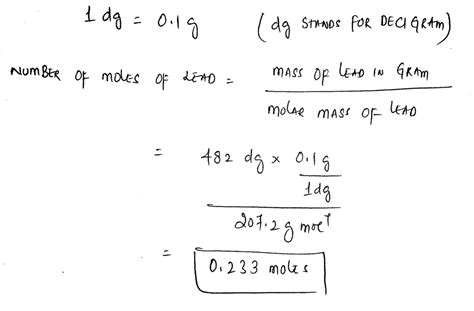 1 dg = 0.1 g (dg STANDS FOR DECIGRAM)
NUMBER OF MOLES OF LEAD = MASS OF LEAD IN GRAM
MOLAR MASS OF LEAD
= 482 dg × 0.1 g
1dg
207.2 g mol⁻¹
= 0.233 moles